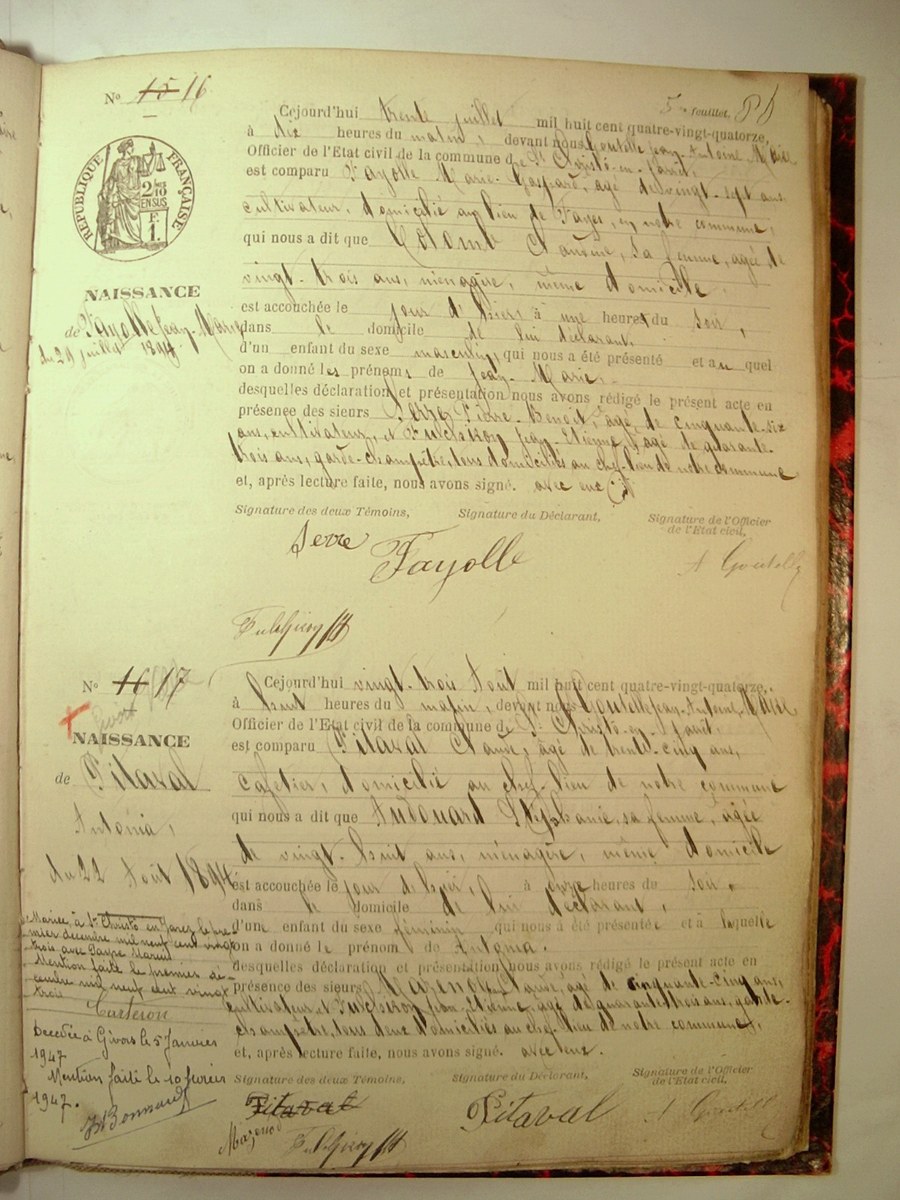 5me feuillet.
No 15 16
Cejourd'hui trente juillet mil huit cent quatre-vingt-quatorze,
à dix heures du matin, devant nous Goutelle Jean-Antoine Maire
Officier de l'Etat civil de la commune de St Christô-en-Jarret,
est comparu Fayolle Marie-Gaspard, âgé de vingt-sept ans,
cultivateur, domicilié au lieu de Fayes, en notre commune,
qui nous a dit que Colomb sa femme, âgée de
vingt-trois ans, ménagère, même domicile,
est accouchée le jour d'hier, à une heure du soir,
dans le domicile de lui déclarant,
d'un enfant du sexe masculin, qui nous a été présenté et auquel
on a donné les prénoms de Jean-Marie.
desquelles déclaration et présentation nous avons rédigé le présent acte en
présence des sieurs Serre Pierre-Benoît, âgé de cinquante-six
ans, cultivateur, et Fulchiron Jean-Etienne, âgé de quarante
trois ans, garde-champêtre, tous domiciliés au chef-lieu de notre commune
et, après lecture faite, nous avons signé. avec eux
Signature des deux Témoins, Signature du Déclarant, Signature de l'Officier de l'Etat civil,
Serre Fayolle A Goutelle
Fulchiron
RÉPUBLIQUE FRANÇAISE
2/10 EN SUS
F. 1.
NAISSANCE
de Fayolle Jean-Marie
du 29 juillet 1894
No 16 17
Cejourd'hui vingt-trois Août mil huit cent quatre-vingt-quatorze,
à huit heures du matin, devant nous Goutelle Jean-Antoine Maire
Officier de l'Etat civil de la commune de St Christô-en-Jarret,
est comparu Pitaval Claude, âgé de trente-cinq ans,
cafetier, domicilié au chef-lieu de notre commune
qui nous a dit que Audouard Stéphanie, sa femme, âgée
de vingt-huit ans, ménagère, même domicile
est accouchée le jour de hier, à onze heures du soir,
dans le domicile de lui déclarant,
d'une enfant du sexe féminin qui nous a été présentée et à laquelle
on a donné le prénom de Antonia.
desquelles déclaration et présentation nous avons rédigé le présent acte en
présence des sieurs Mazenod Claude, âgé de cinquante-cinq ans,
cultivateur et Fulchiron Jean-Etienne, âgé de quarante trois ans, garde-
champêtre, tous deux domiciliés au chef-lieu de notre commune,
et, après lecture faite, nous avons signé. avec eux.
Signature des deux Témoins, Signature du Déclarant, Signature de l'Officier de l'Etat civil,
Pitaval Pitaval A Goutelle
Mazenod Fulchiron
NAISSANCE
de Pitaval
Antonia,
du 22 Août 1894
Mariée à St Christô en Jarez le pre-
mier décembre mil neuf cent vingt
trois avec Payre Marcel
Mention faite le premier dé-
cembre mil neuf cent vingt
trois
Decédée à Givors le 5 Janvier
1947
Mention faite le 10 février
1947.